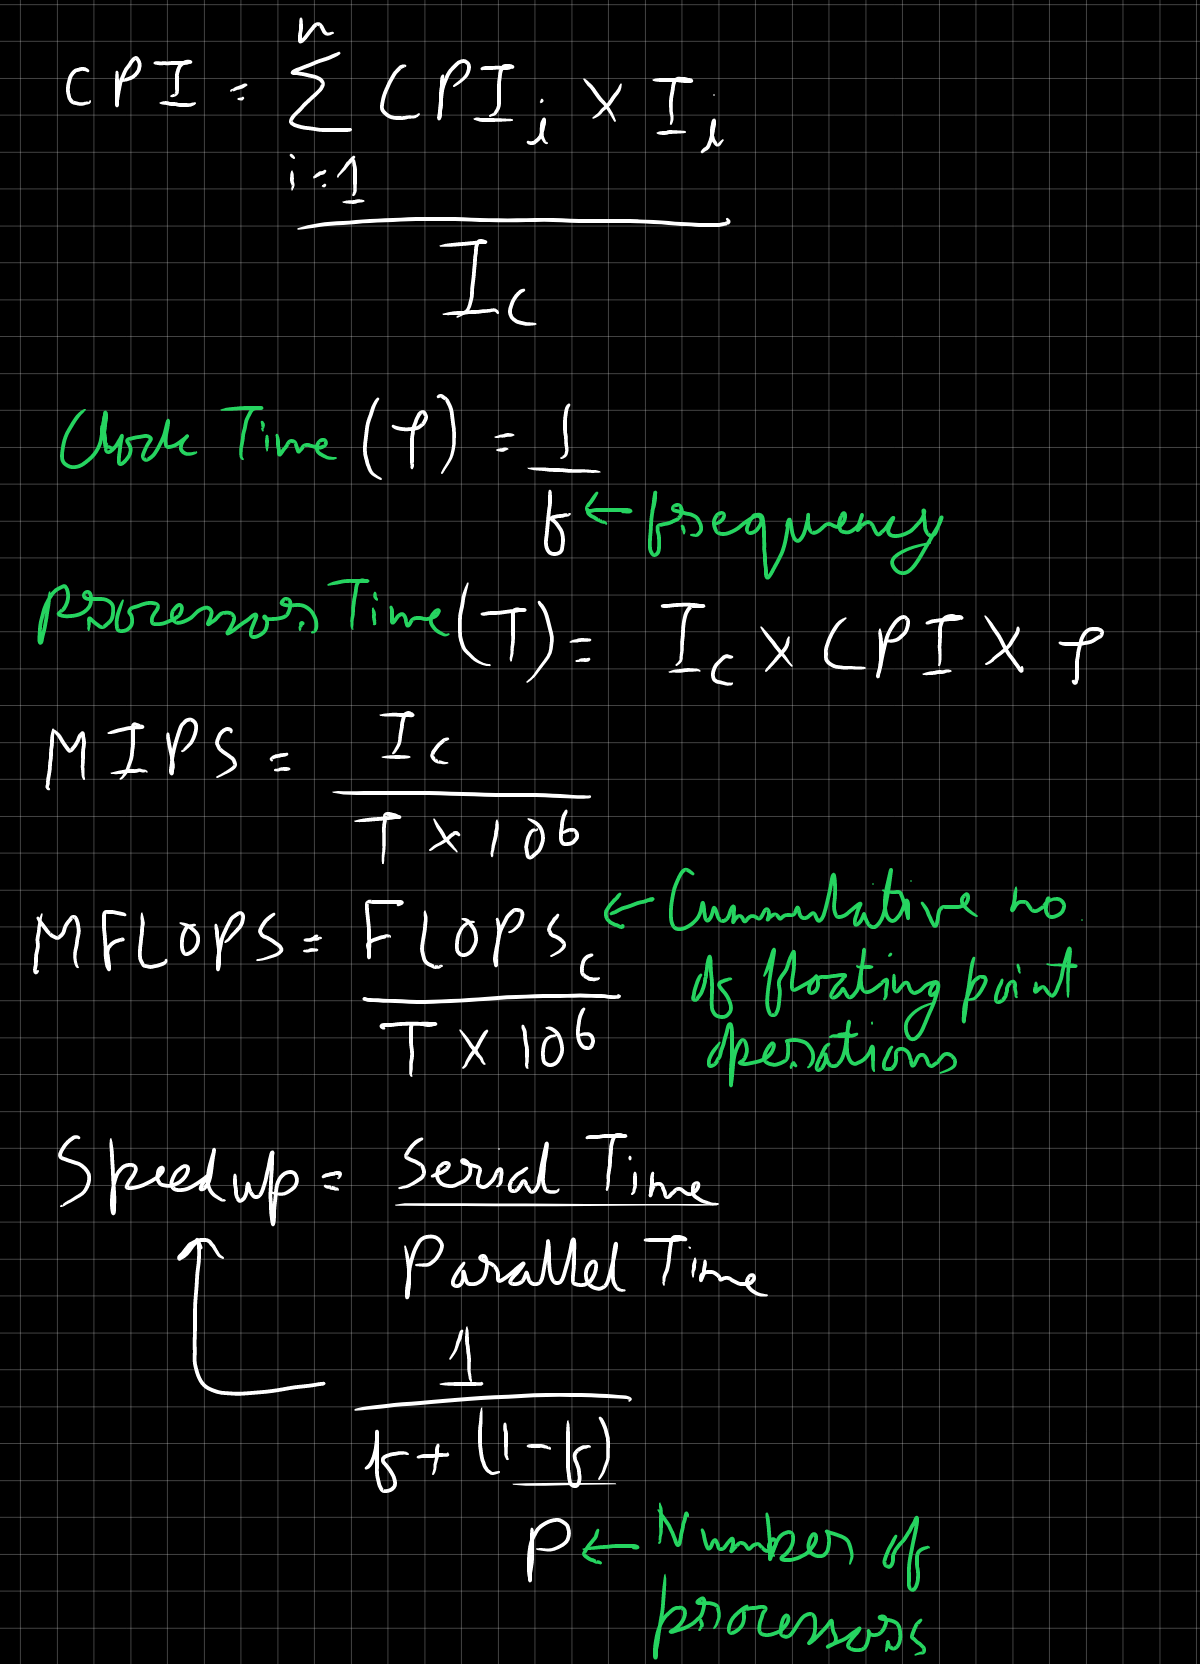 CPI = n∑i=1 CPIi × Ii
Ic
Clock Time (τ) = 1
f ← frequency
Processor Time (T) = Ic × CPI × τ
MIPS = Ic
T × 10^6
MFLOPS = FLOPSc ← Cummulative no
of floating point
operations
T × 10^6
Speedup = Serial Time
Parallel Time
1
f + (1 - f)
P ← Number of
processors